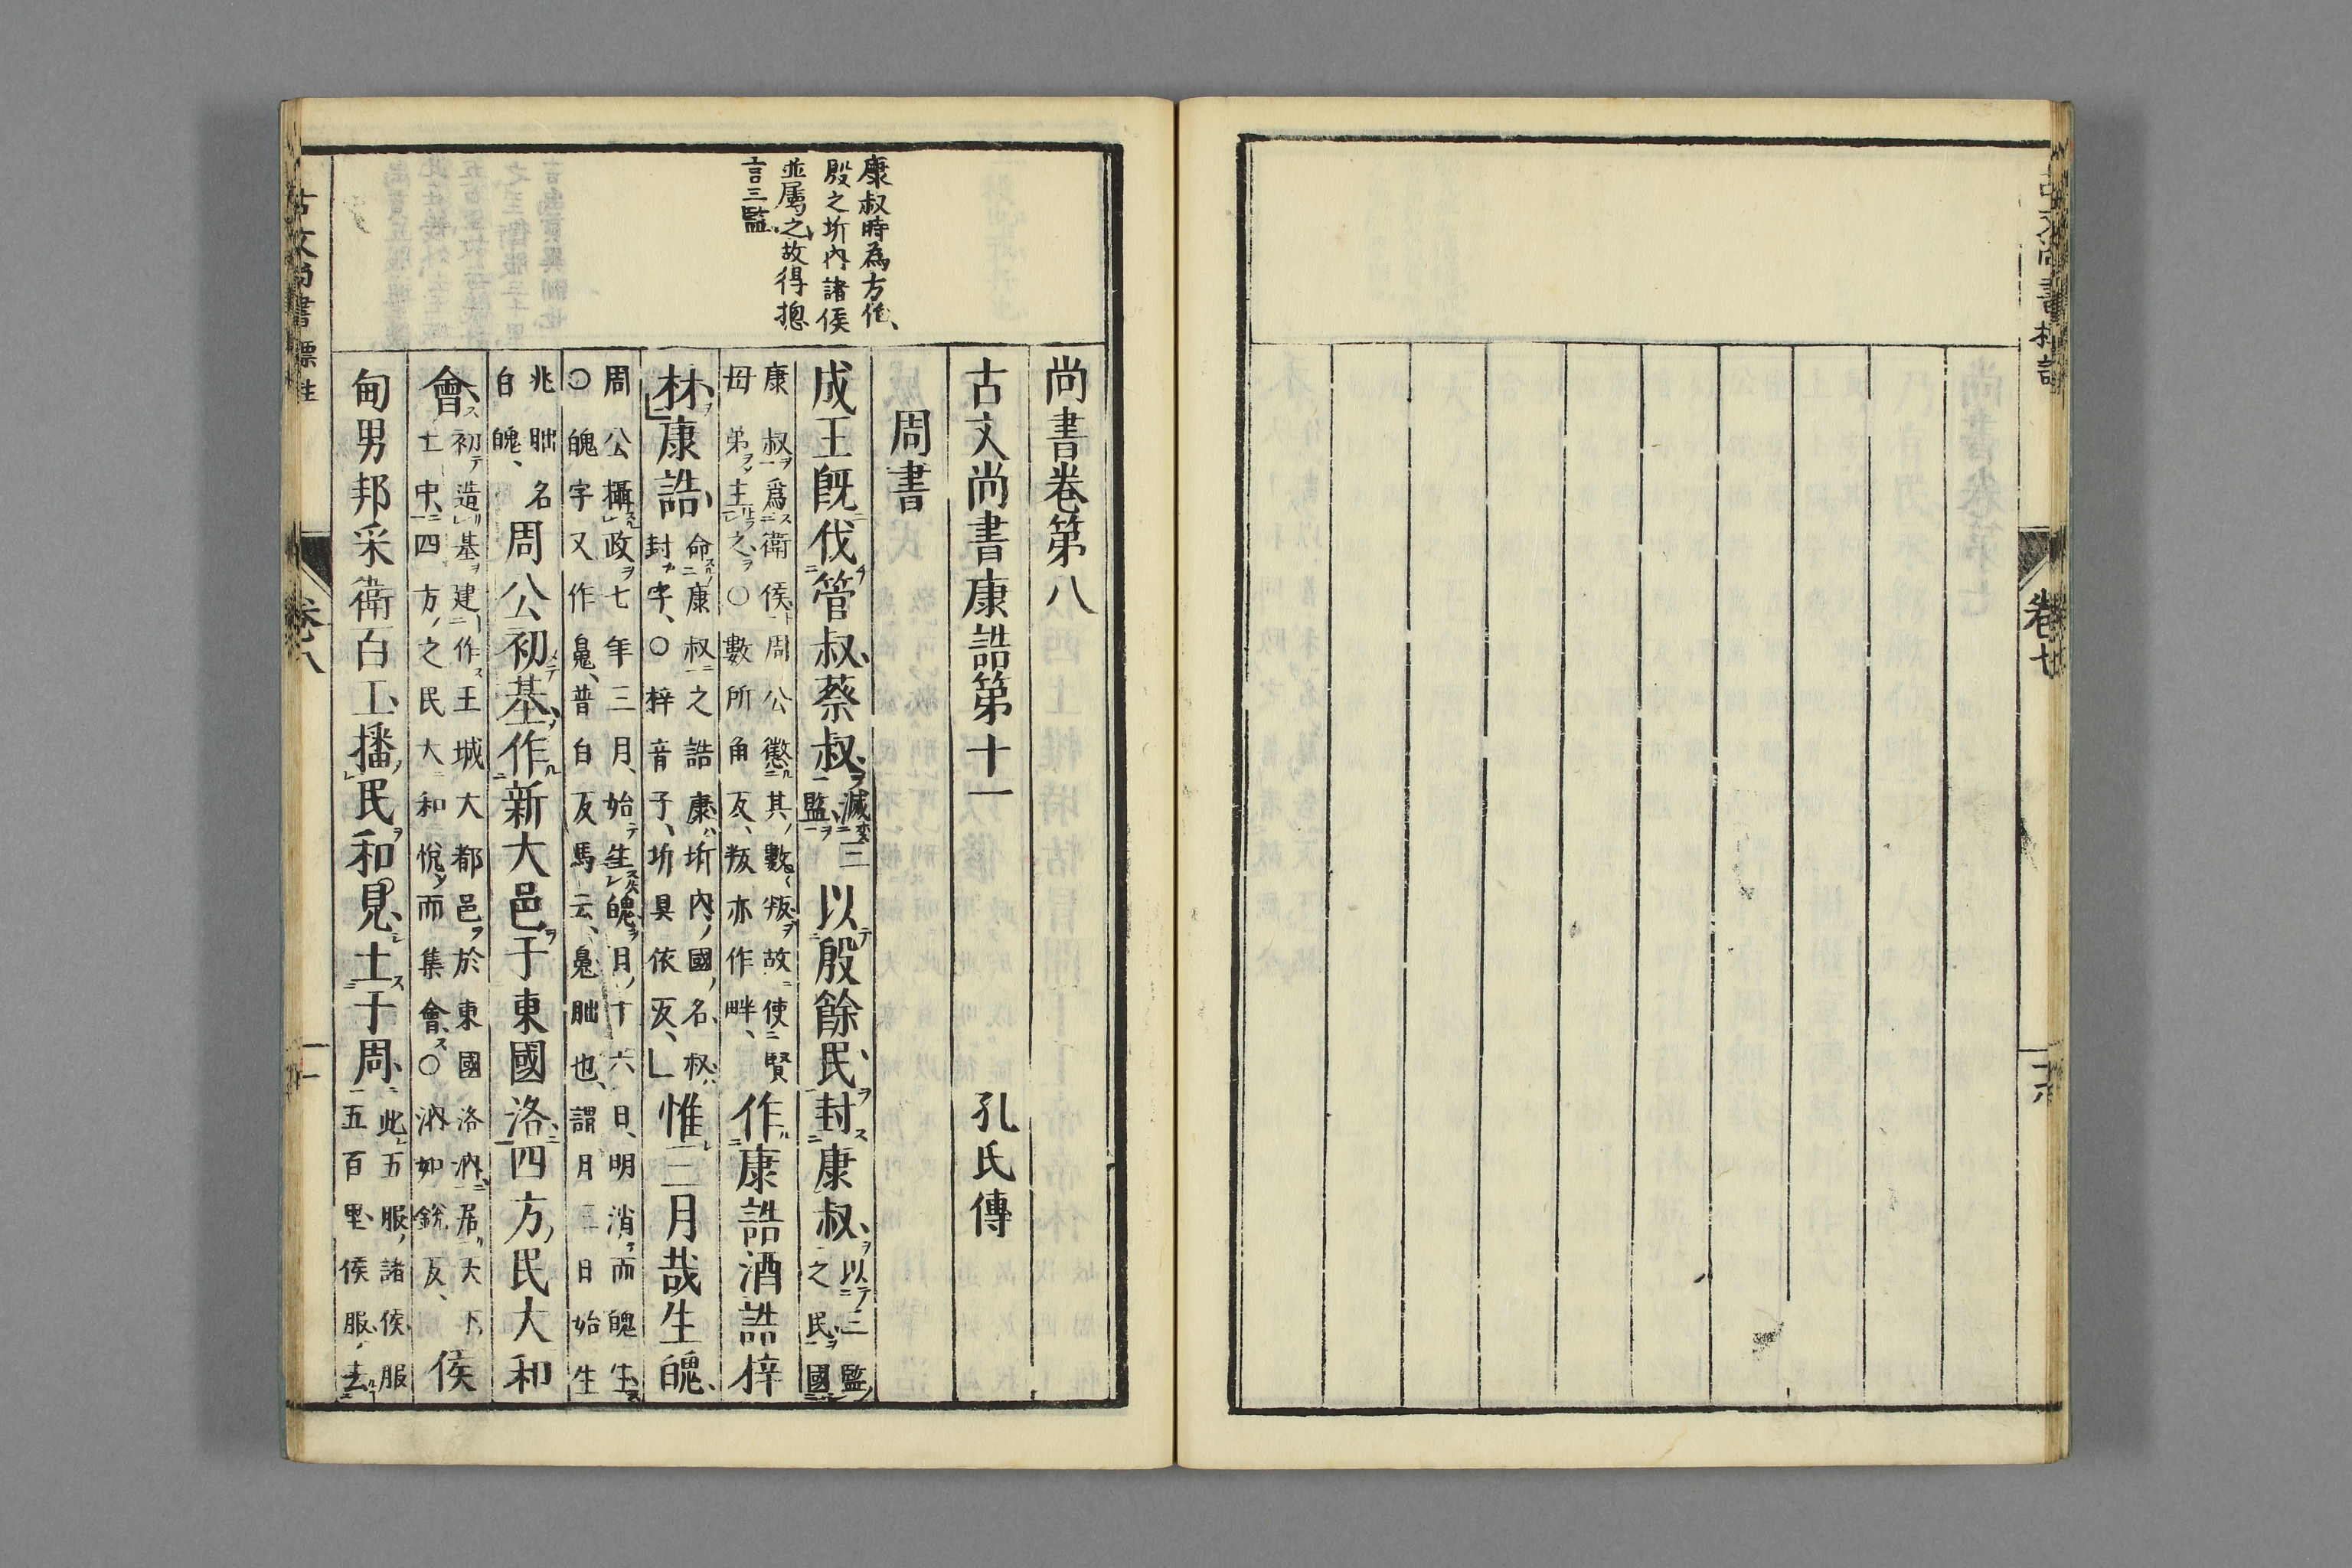 卷七
康叔時為方伯
殷之圻內諸侯
並属之故得揔
言三監
尚書卷第八
古文尚書康誥第十一 孔氏傳
周書
成王既伐管叔蔡叔
滅三
監
以殷餘民封康叔
以三監
之民國
康叔爲衛侯周公懲其數叛故使賢
母弟主之○數所角反叛亦作畔
作康誥酒誥梓
材康誥
命康叔之誥康圻內國名叔
封字○梓音子圻具依反
惟三月哉生魄
周公攝政七年三月始生魄月十六日明消而魄生
○魄字又作㿟普白反馬云㿟朏也謂月三日始生
兆朏名
白魄
周公初基作新大邑于東國洛四方民大和
會
初造基建作王城大都邑於東國洛汭居天下
土中四方之民大和悅而集會○汭如銳反
侯
甸男邦采衛百工播民和見士于周
此五服諸侯服
五百里侯服去
古文尚書 標註
卷八
一